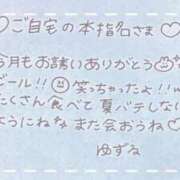 ♡ご自宅の本指名さま♡
今月もお誘いありがとう
ビール!! 笑っちゃったよ!!w
たくさん食べて夏バテしない
ようにねな また会おうね♡
ゆずね